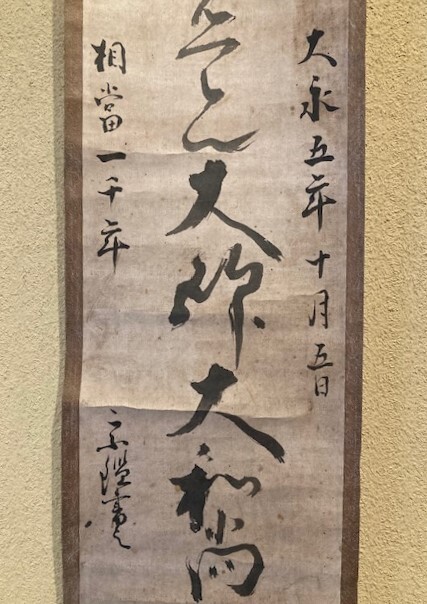 大永五年十月五日
大師大和尚
相當一千年
宗鑑書之